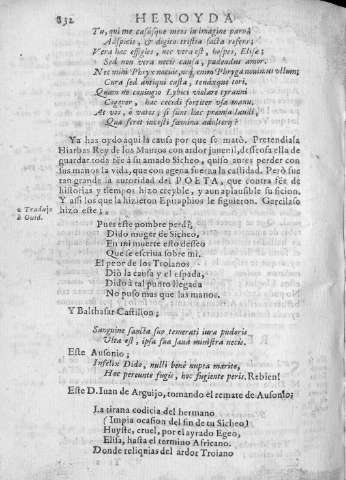 832 HEROYDA
Tu, qui me casusque meos in imagine parva
Adspicis, & digito tristia facta refers;
Vera hac effigies, nec vera est, hospes, Elisa;
Sed non vera necis causa, pudendus amor.
Nec mihi Phryx nocuit, enim Phryga novimus ullum;
Cura sed antiqui casta, tenaxque tori.
Quam ne coniugio Lybici violare tyranni
Cogerer, hac cecidi fortiter usa manu.
At vos, ò vates; si sunt hac præmia laudi,
Qua foret incesti fœmina adulterij?
Ya has oydo aqui la causa por que se matò. Pretendiala
Hiarbas Rey de los Mauros con ardor juvenil, desseosa ella de
guardar toda fêe à su amado Sicheo, quiso antes perder con
sus manos la vida, que con agena fuerza la castidad. Però fue
tan grande la autoridad del POETA, que contra fêe de
historias y tiempos, hizo creyble, y aun plausible su ficion.
Y assi los que la hizieron Epitaphios le siguieron. Garcilaso
hizo este;
a Tradujo
à Ouid.
Pues este nombre perdi,
Dido muger de Sicheo,
En mi muerte esto desseo
Que se escriva sobre mi.
El peor de los Troianos
Diò la causa y el espada,
Dido à tal punto llegada
No puso mas que las manos.
Y Balthasar Castillon;
Sanguine sancta suo temerati iura pudoris
Ulta est, ipsa sua sæva ministra necis.
Este Ausonio;
Infelix Dido, nulli benè nupta marito,
Hoc pereunte fugis, hoc fugiente peris. Rebien!
Este D. Iuan de Arguijo, tomando el remate de Ausonio;
La tirana codicia del hermano
(Impia ocasion del fin de tu Sicheo)
Huyste, cruel, por el ayrado Egeo,
Elisa, hasta el termino Africano.
Donde reliqnias del ardor Troiano